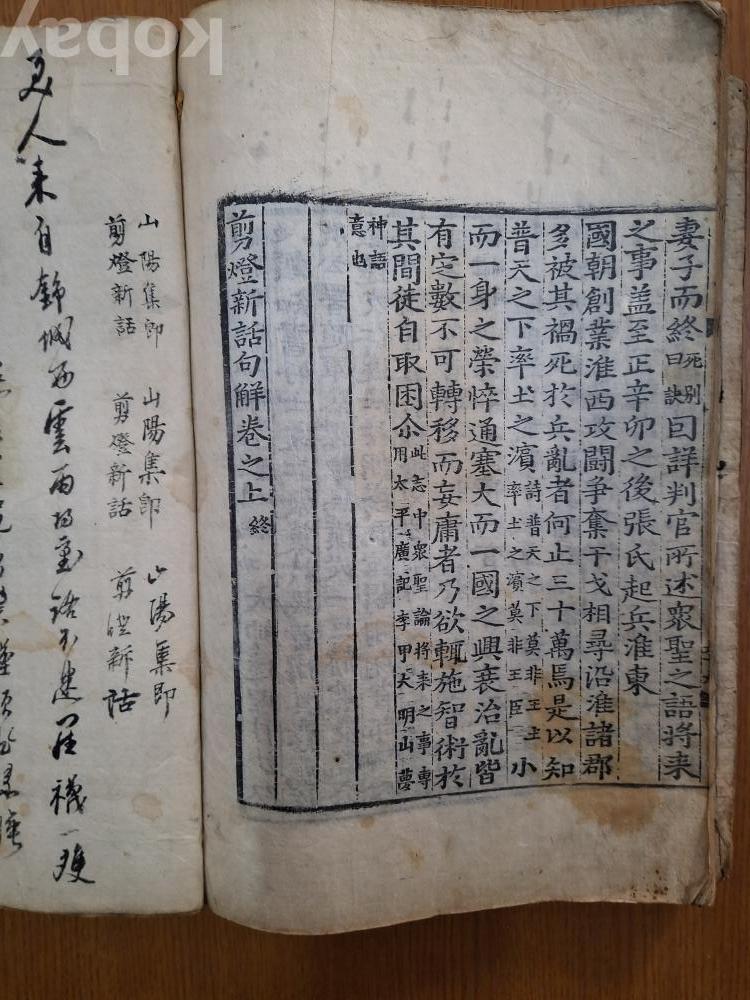 妻子而終死別曰訣囙詳判官所述衆聖之語將来
之事盖至正辛卯之後張氏起兵淮東
國朝創業淮西攻鬪争奪干戈相尋沿淮諸郡
多被其禍死於兵亂者何止三十萬焉是以知
普天之下率土之濱詩普天之下莫非王土率土之濱莫非王臣小
而一身之榮悴通塞大而一國之興衰治亂皆
有定數不可轉移而妄庸者乃欲輒施智術於
其間徒自取困尒此志中衆聖論將来之事專用太平廣記李甲大明山夢
神語意也
剪燈新話句解卷之上終
山陽集郎 山陽集郎 山陽集即
剪燈新話 剪燈新話 剪燈新話
美人来自錦城西雲雨 襪一
Kobay